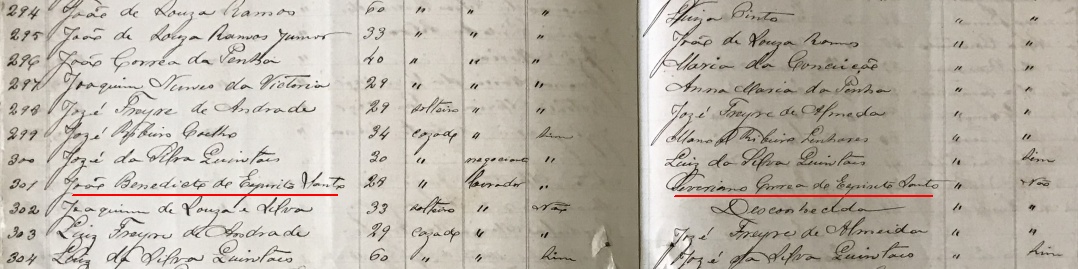 294 João de Souza Ramos 60 " " " Luiza Pinto " "
295 João de Souza Ramos Junior 33 " " " João de Souza Ramos " "
296 João Corrêa da Penha 40 " " " Maria da Conceição " "
297 Joaquim Nunes da Victoria 29 " " " Anna Maria da Penha " "
298 Jozé Freyre de Andrade 29 solteiro " " Jozé Freyre de Almeida " "
299 Jozé Ribeiro Coelho 34 cazado " Sim Manoel Ribeiro Linhares " "
300 Jozé da Silva Quintaes 30 " negociante " Luiz da Silva Quintaes " Sim
301 João Benedicto do Espirito Santo 28 " lavrador " Severiano Corrêa do Espirito Santo " Não
302 Joaquim de Souza e Silva 33 solteiro " Não Desconhecida " "
303 Luiz Freyre de Andrade 29 cazado " " Jozé Freyre de Almeida " "
304 Luiz da Silva Quintaes 60 " " Sim Jozé da Silva Quintaes " Sim